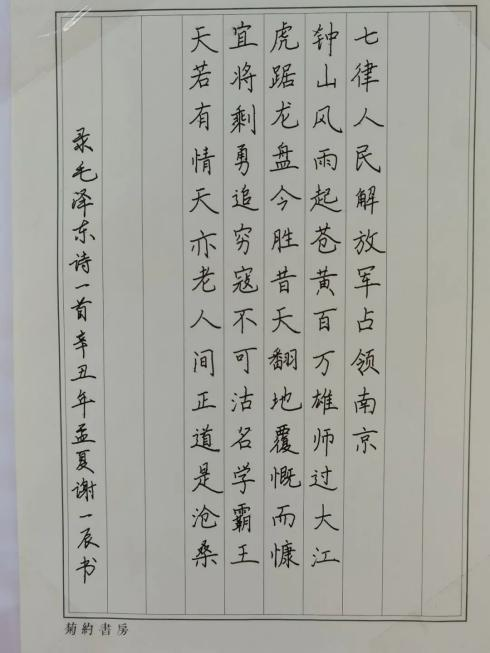 七律人民解放军占领南京
钟山风雨起苍黄百万雄师过大江
虎踞龙盘今胜昔天翻地覆慨而慷
宜将剩勇追穷寇不可沽名学霸王
天若有情天亦老人间正道是沧桑
录毛泽东诗一首辛丑年孟夏谢一辰书
菊約書房